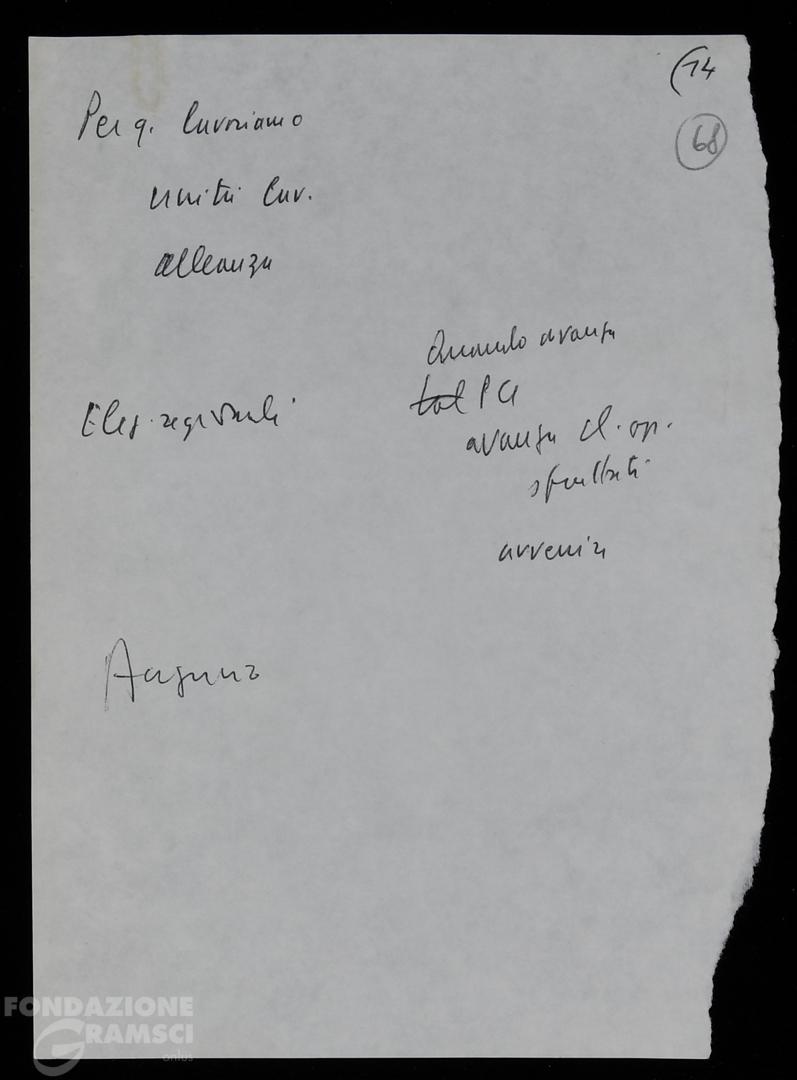 (14
68
Per q. lavoriamo
unità lav.
alleanza
Quando avanza
tal PCI
Elez. regionali
avanza cl. op.
sfruttati
avvenire
Auguri
FONDAZIONE
GRAMSCI
onlus